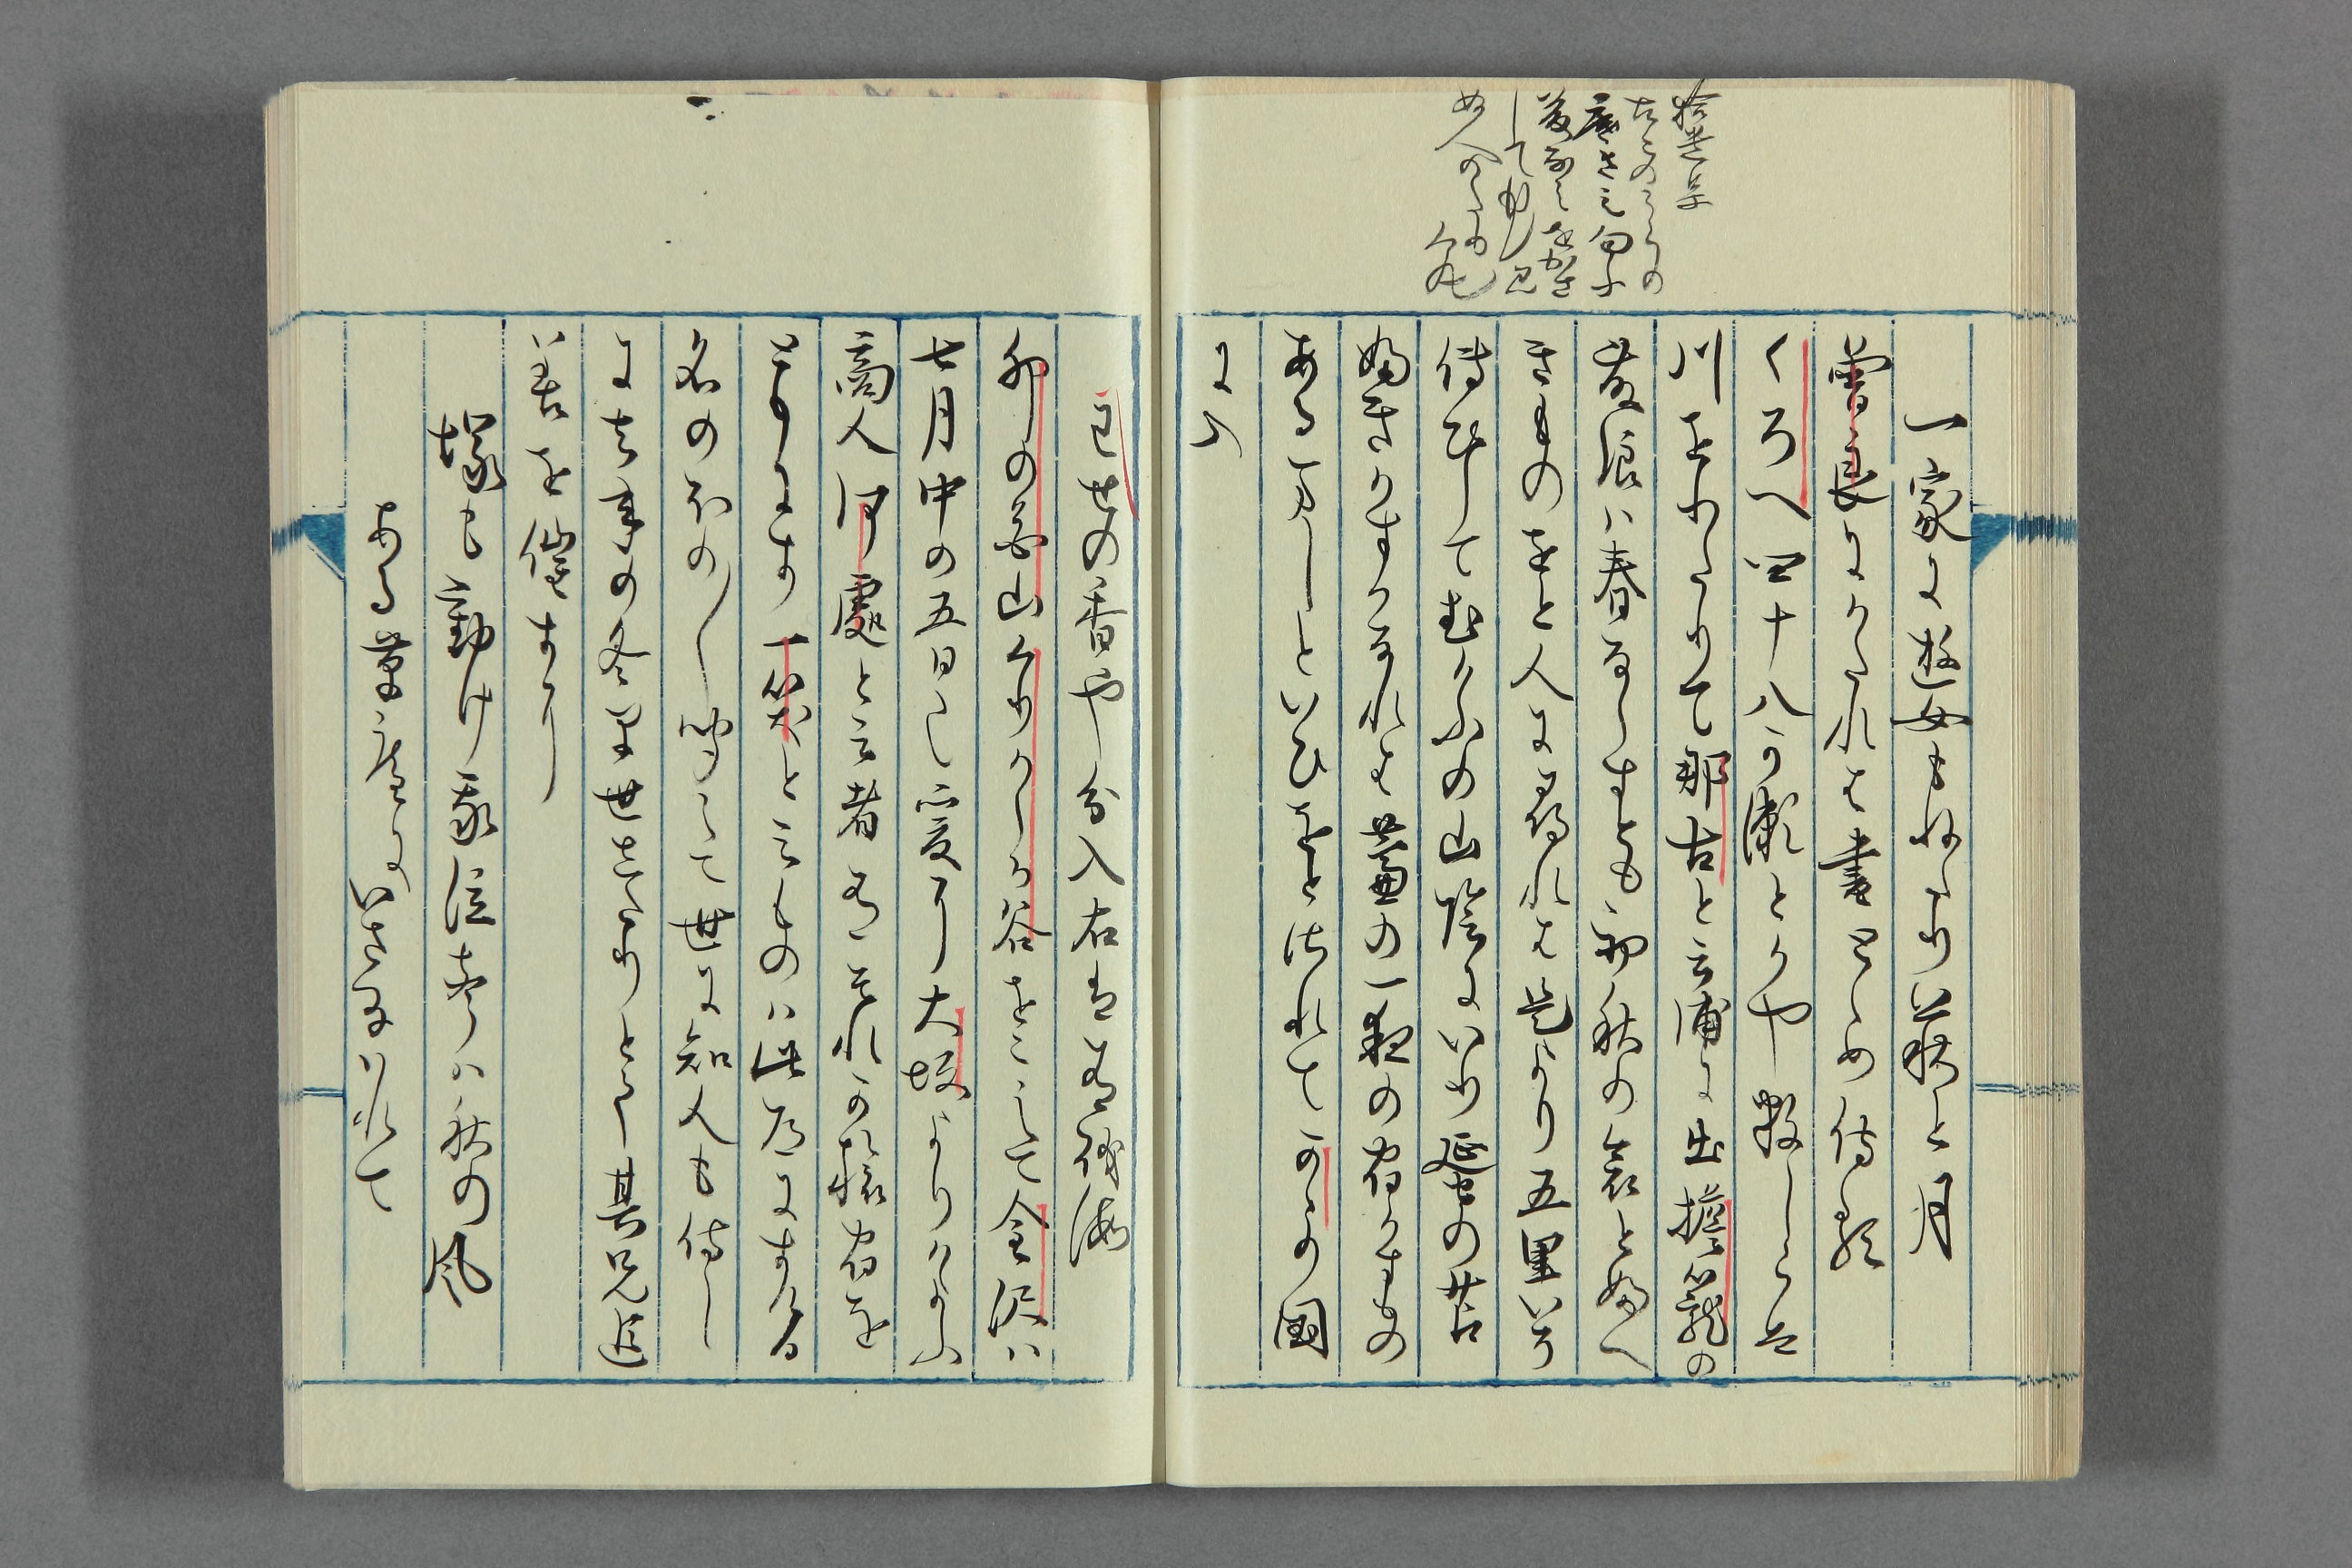 一家に遊女もねたり萩と月
曽良にかたれは書とゝめ侍る
くろへ四十八か瀬とかや数しらぬ
川をわたりて那古と云浦に出擔籠の
藤浪は春ならすとも初秋の哀とふへ
きものをと人に尋れは是より五里いそ
傳ひしてむかふの山陰にいり蜑の苫
ふきかすかなれは蘆の一夜の宿かすもの
あるましといひをとされてかゝの国
に入
わせの香や分入右は有磯海
卯の花山くりからか谷をこえて金沢は
七月中の五日也爰に大坂よりかよふ
商人何處と云者有それか旅宿を
ともにす一笑と云ものは此道にすける
名のほのゝ聞えて世に知人も侍し
に去年の冬早世したりとて其兄追
善を催すに
塚も動け我泣声は秋の風
ある草庵にいさなはれて